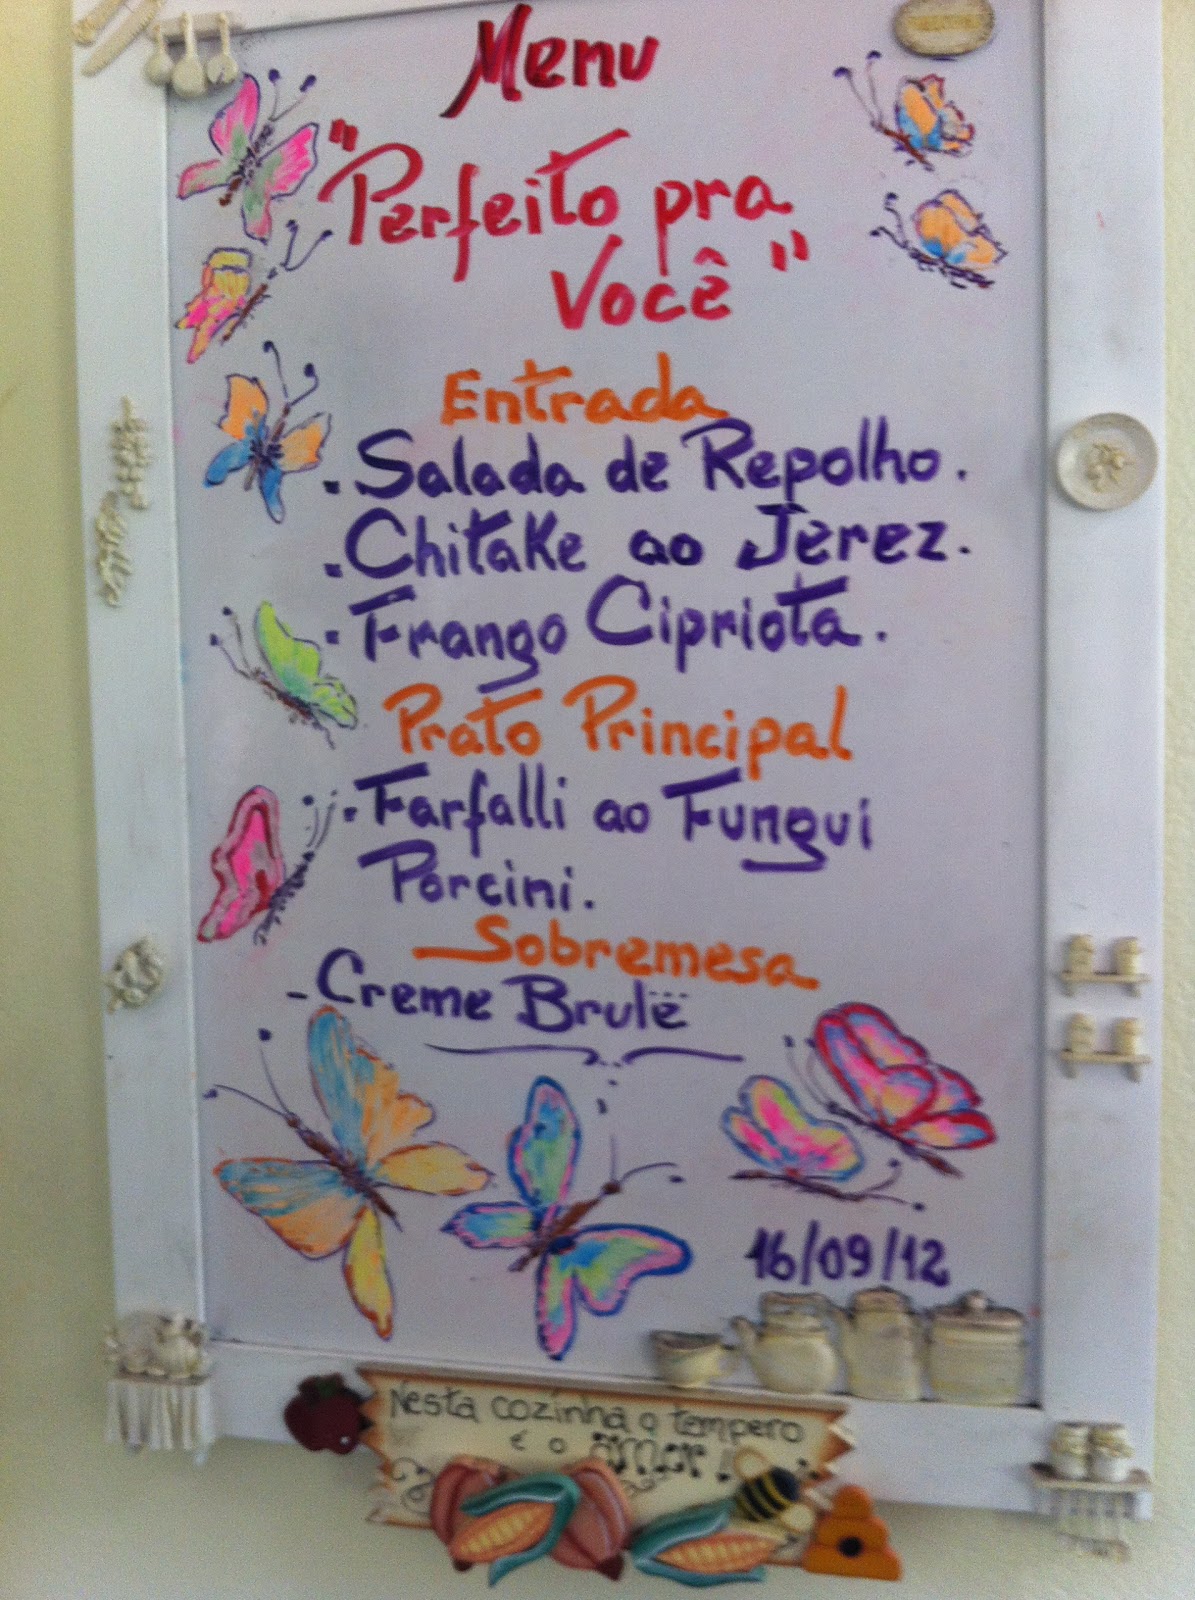 Menu
"Perfeito pra
Você"
Entrada
. Salada de Repolho.
. Chitake ao Jerez.
. Frango Cipriota.
Prato Principal
. Farfalli ao Fungui
Porcini.
Sobremesa
- Creme Brulë
16/09/12
Nesta cozinha o tempero
é o amor!!